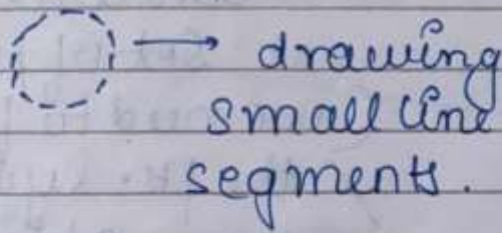 drawing
small line
segments.